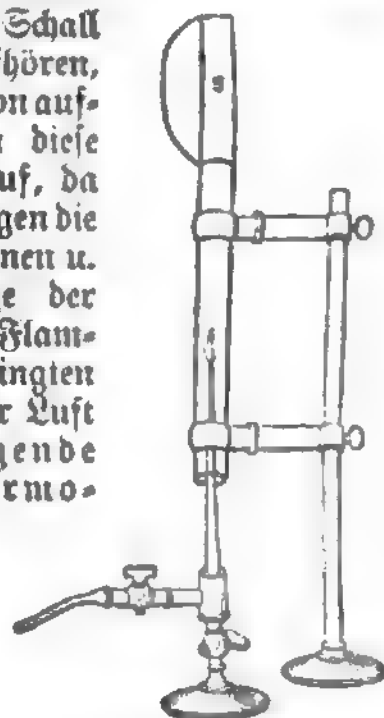 Schall
hören,
on auf-
diese
uf, da
gen die
nen u.
e der
Flam-
ingten
r Luft
gende
rmo-
g